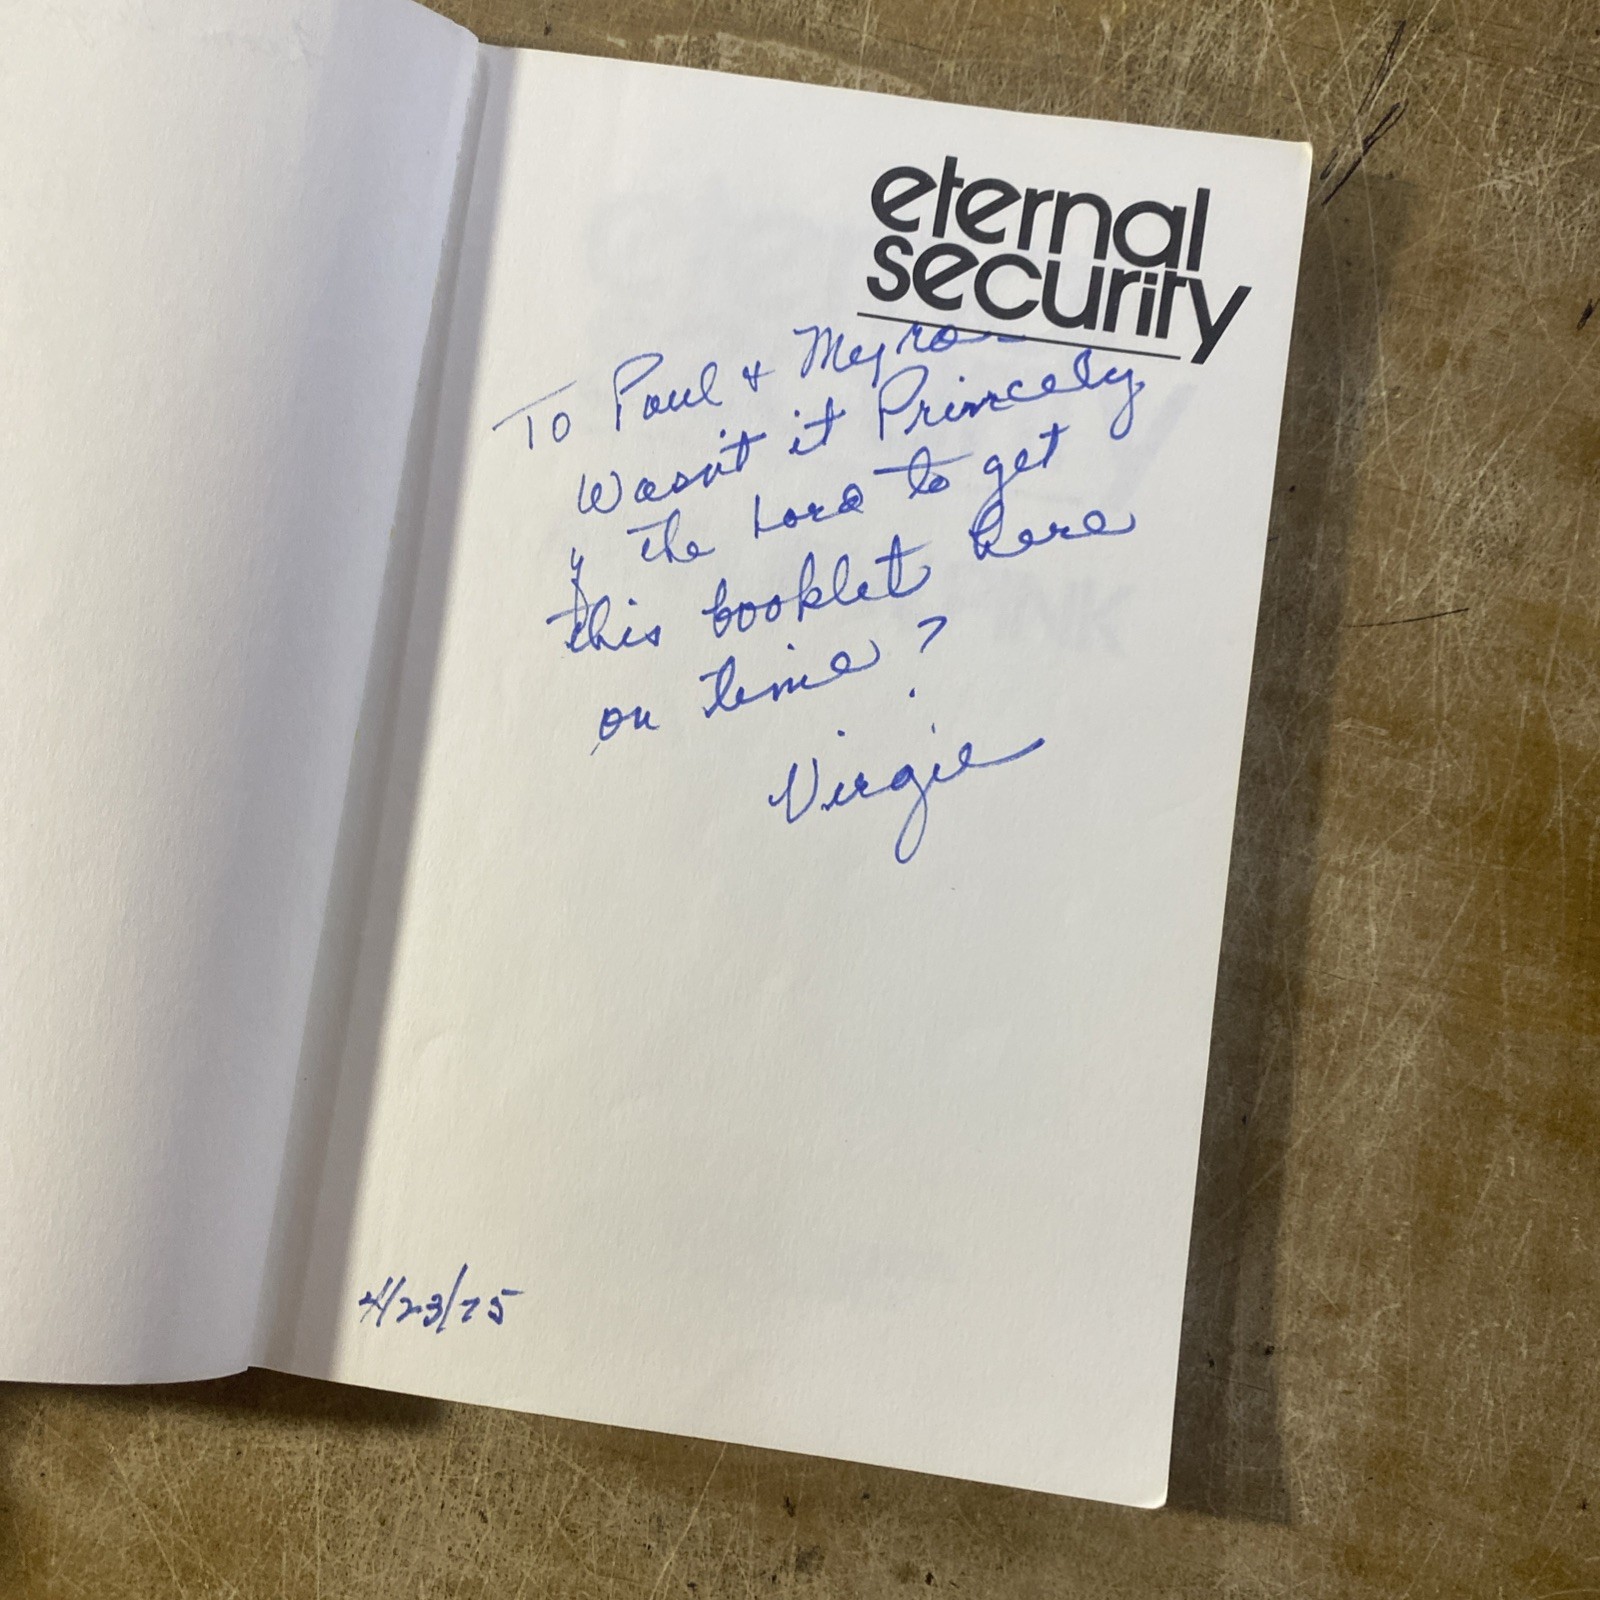 eternal
security
To Paul & Myron
Wasn't it Princely
of the Lord to get
this booklet here
on time?
Virgie
4/23/75